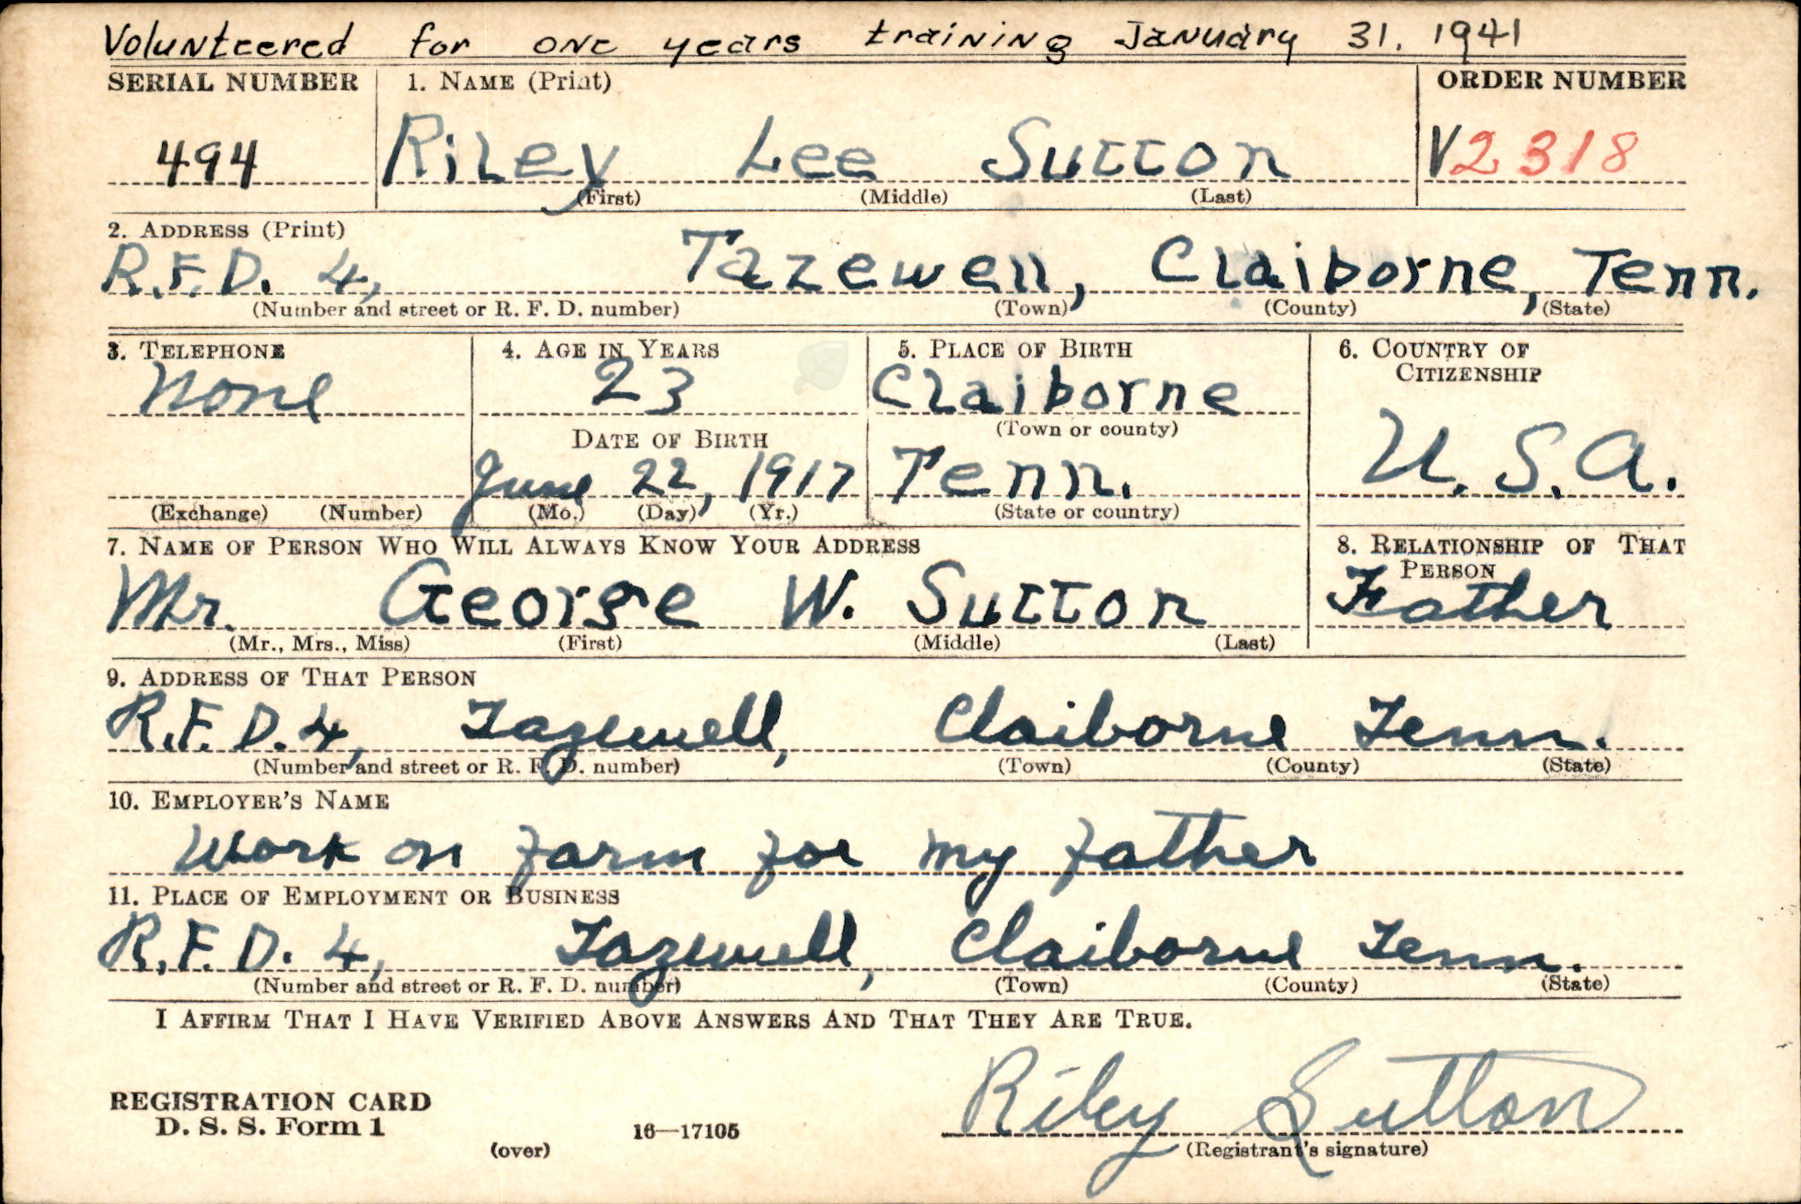 Volunteered for one years training January 31, 1941
SERIAL NUMBER 1. NAME (Print) ORDER NUMBER
494 Riley Lee Sutton V2318
(First) (Middle) (Last)
2. ADDRESS (Print)
R.F.D. 4, Tazewell, Claiborne, Tenn.
(Number and street or R. F. D. number) (Town) (County) (State)
3. TELEPHONE 4. AGE IN YEARS 5. PLACE OF BIRTH 6. COUNTRY OF
CITIZENSHIP
None 23 Claiborne
(Town or county)
DATE OF BIRTH U.S.A.
June 22, 1917 Tenn.
(Exchange) (Number) (Mo.) (Day) (Yr.) (State or country)
7. NAME OF PERSON WHO WILL ALWAYS KNOW YOUR ADDRESS 8. RELATIONSHIP OF THAT
PERSON
Mr. George W. Sutton Father
(Mr., Mrs., Miss) (First) (Middle) (Last)
9. ADDRESS OF THAT PERSON
R.F.D. 4, Tazewell, Claiborne Tenn.
(Number and street or R. F. D. number) (Town) (County) (State)
10. EMPLOYER'S NAME
Work on farm for my father
11. PLACE OF EMPLOYMENT OR BUSINESS
R.F.D. 4, Tazewell, Claiborne Tenn.
(Number and street or R. F. D. number) (Town) (County) (State)
I AFFIRM THAT I HAVE VERIFIED ABOVE ANSWERS AND THAT THEY ARE TRUE.
REGISTRATION CARD
D. S. S. Form 1
(over) 16—17105
Riley Sutton
(Registrant's signature)